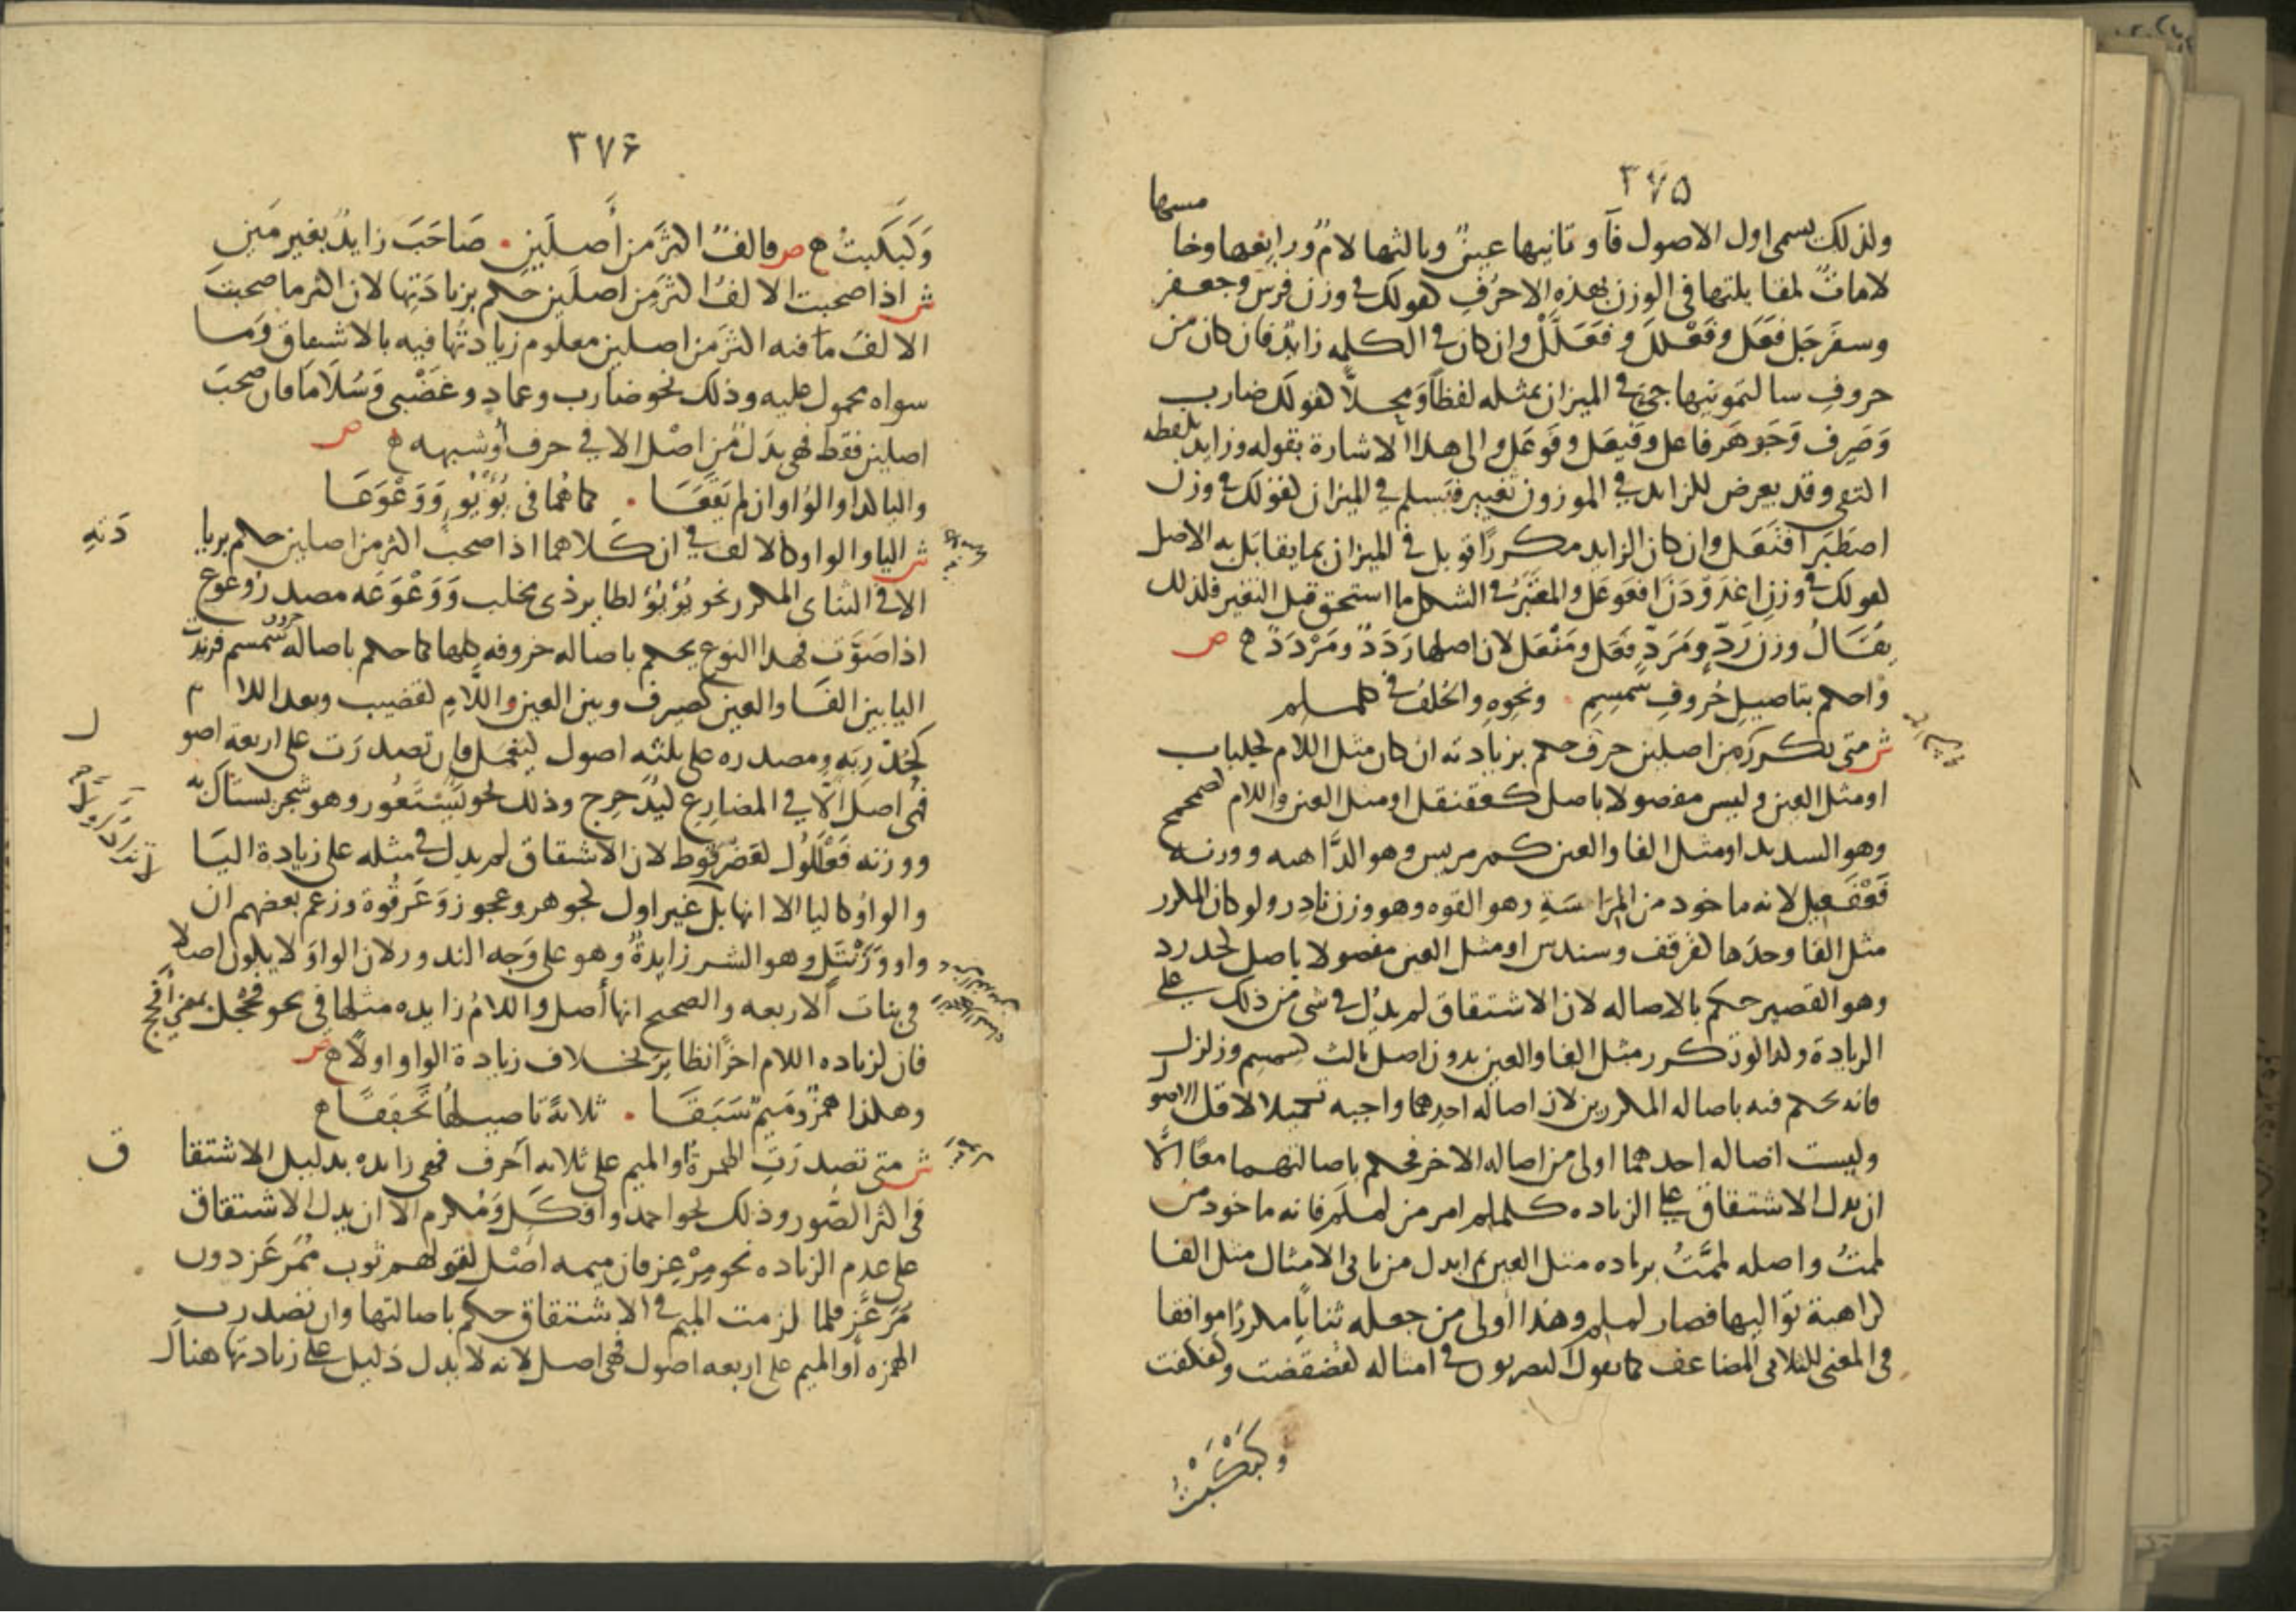 ٣٧٥
ولذلك يسمى اول الاصول فآ و ثانيها عينٌ وثالثها لامٌ ورابعها وخا
مسها
لاماتٌ لمقابلتها في الوزن بهذه الاحرُفِ كقولك في وزن فرس وجعفر
وسفرجَل فَعَل وفَعْلَل وفَعَلَّلْ وان كان في الكلمه زائدٌ فان كان من
حروفِ سالتمونيها جئ في الميزان بمثله لفظًا ومحلاً كقولك ضارب
وَصَيرِف وَجَوهَر فاعل وفَيعَل وفَوعَل والى هذا الاشارة بقوله وزايد بلفظه
اكتفى وقد يعرض للزايد في الموزون تغيير فيَسلم في الميزان كقولك في وزن
اصطَبَر افتَعَل وان كان الزايد مكررًا قوبل في الميزان بما يقابَل به الاصل
كقولك في وزن اغدَودَنَ افعَوعَل والمعتَبَر في الشكل ما استحق قبل التغير فلذلك
يقَالُ وزن رَدٍّ ومَرَدٍّ فَعَل ومَفْعَل لان اصلها رَدَدٌ ومَرْدَدٌ ه ص
واحكم بتاصيلِ حُروفِ سِمسِمِ . ونحوِهِ والخُلفُ في كلمسلم
ش متى تكرر من اصلين حرف حكم بزيادته ان كان مثل اللام كجلباب
او مثل العين وليس مفصولا باصل كعقنقل او مثل العين واللام كصمحمح
وهو الشديد او مثل الفا والعين كمرمريس وهو الدَّاهيه ووزنه
فَعْفَعيل لانه ماخود من المَراسَةِ وهو القوه وهو وزن نادِر ولو كان المكرر
مثل الفا وحدَها كقرقف وسندس او مثل العين مفصولا باصل كحدرد
وهو القصير حكم بالاصاله لان الاشتقاق لم يدُل في شي من ذلك على
الزيادة ولذا لو تكرر مثل الفا والعين بدون اصل ثالث كسِمسِم وزلزل
فانه يحكم فيه باصاله المكررين لان اصاله احدهما واجبه تكميلا لاقل الاصو
وليست اصاله احدهما اولى من اصاله الاخر فحكم باصالتهما معًا الَّا
ان يدل الاشتقاق على الزياده كلملم امر من لملَم فانه ماخود من
لممتُ واصله لمَّمتُ بزياده مثل العين ثم ابدل من ثاني الامثال مثل الفا
كراهية تواليها فصار لملم وهذا اولى من جعله ثنائيًا مكررًا موافقا
في المعنى للثلاثي المضاعف كما يقول البصريون في امثاله كقضقضت وكفكفت
وَكَبْكَبْتُ
٣٧٦
وَكَبكَبتُ ه ص فالفٌ اكثرَ من أَصلَينِ . صَاحَبَ زايدٌ بغير مَينِ
ش اذا صحبت الالفُ اكثرَ مِن اصلَين حكم بزيادَتِها لان اكثر ما صحبت
الالفُ ما فيه اكثرَ من اصلين معلوم زيادتُها فيه بالاشتقاق ومَا
سواه محمول عليه وذلك نحو ضارب وعمادٍ وغَضْبى وَسُلَامَا فان صحبَت
اصلين فقط فهي بدَل مِن اصْل الا في حرف أوشبهه ه ص
واليا كذا والوُاو ان لم يَقَعَا . كما هُما في يُؤيُؤٍ وَوَعْوَعَا
ش اليا والواو كالالف في ان كَلاهما اذا صحب اكثر من اصلين حكم بزيا
دَتهِ
الا في الثنائ المكرر نحو يُؤيُؤ لطاير ذي مخلب وَوَعْوَعَه مصدر وَعوَع
اذا صَوَّت فهذا النوع يحكم باصاله حروفه كلها كما حكم باصاله حروف سمسم فزيدت
اليا بين الفَا والعين كصيرف وبين العين واللَّامِ كقضيب وبعد اللا م
كحُذريَهٍ ومصدره على ثلثه اصول كيَعمَل فان تصدرَت على اربعة اصو
ل
فهي اصل الَّا في المضارِعِ كيُدَحرِج وذلك نحو يَستَعُور وهو شجر يستاك به
ووزنه فَعْلَلُول كعَضرَفوط لان الاشتقاق لم يدل في مثله على زيادة اليَا
والواوُ كاليا الا انها بل غير اول كجوهر وعجوز وَعَرقُوة وزعم بعضهم ان
واو وَرَنْتَل وهو الشر زايدةٌ وهو على وَجه الندور لان الواوَ لا يكون اصلا
في بناتِ الاربعه والصحيح انها أصل واللامُ زايده مثلها في نحو فَحْجَل بمعنى أَفحَج
فان لزياده اللام اخرًا نظايرَ بخلاف زيادة الواو اولًا ه ص
وهكذا همزٌ ومَيمٌ سَبَقَا . ثلاثةً تاصيلُها تحَققَا ه
ش متى تصدرَتِ الهمزةُ او الميم على ثلاثه أحرف فهي زايده بدليل الاشتقا
ق
في اكثر الصُّور وذلك نحو احمد وافكَلٍ وَمُكرم الا ان يدل الاشتقاق
على عدم الزياده نحو مِرْعِز فان ميمه اصْل لقولهم ثوب مُمَرعَز دون
مُرَعَّزٍ فلما لزمت الميم في الاشتقاق حكم باصالتها وان تصدرت
الهمزه أو الميم على اربعه اصول فهي اصل لانه لا يدل دَليل على زيادتها هناك